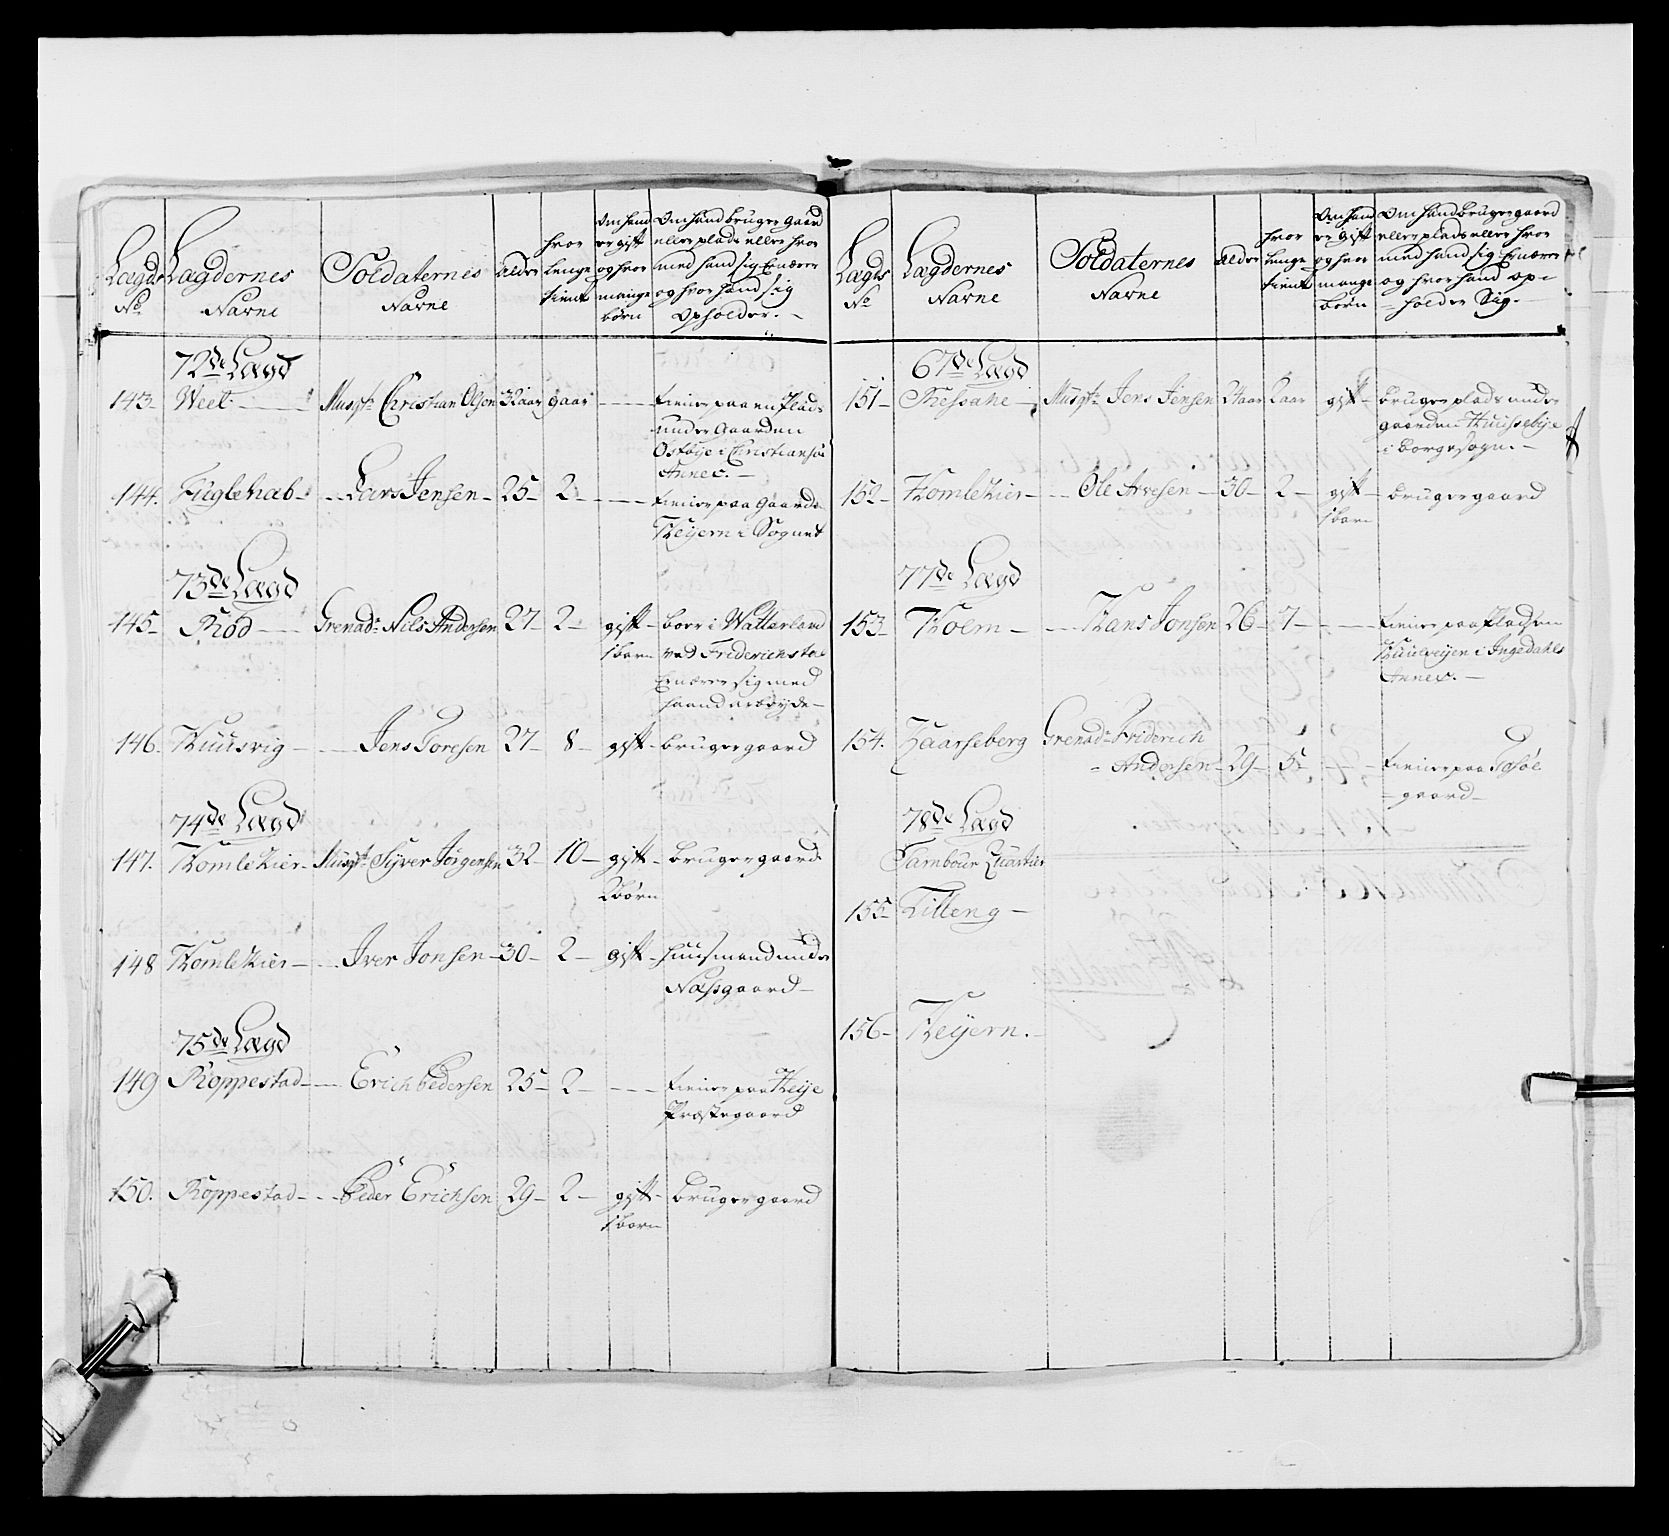 Lægds No | Lægdernes Navne | Soldaternes Navne | Alder | hvor lenge tient | Om hand er gift og hvor mange børn | Om hand bruger gaard eller plads eller hvor med hand sig Ernærer og hvor hand sig Opholder.
72de Lægd
143 Weel Musqt. Christian Olsen 32 aar 9 aar tiener paa en Plads
under Gaarden
Ostøye i Christiansøe
Annex.
144. Fuglehab Lars Jensen 25 2 tiener paa Gaarde
Heyern i Sognet
73de Lægd
145 Rød Grenad. Nils Andersen 27 2 gift boer i Watterland
1 barn ved Friderichstad
Ernærer sig med
haand arbøyde
146. Huusvig Jens Toresen 27 8 gift bruger gaard
74de Lægd
147. Homlekier Musqt. Syver Jørgensen 32 10 gift bruger gaard
2 børn
148 Homlekier Iver Jonsen 30 2 gift huusmand under
Næssgaard
75de Lægd
149 Roppestad Erich Pedersen 25 2 tiener paa Heije
Præstegaard
150. Roppestad Peder Erichsen 29 2 gift bruger gaard
1 barn
Lægds No | Lægdernes Navne | Soldaternes Navne | Alder | hvor lenge tient | Om hand er Gift og hvor mange børn | Om hand bruger gaard eller plads eller hvor med hand sig Ernærer og hvor hand opholder Sig.
67de Lægd
151 Musqt. Jens Jensen 24 aar 2 aar gift bruger plads under
gaarden Huusebye
i Borge sogn.
152 Homlekier Ole Arvesen 30 2 gift bruger gaard
1 barn
77de Lægd
153 Holm Hans Jonsen 26 7 tiener paa Pladsen
i Ingedahls
Annex.
154. Haarseberg Grenad. Friderich
Andersen 29 5 tiener paa Tosøe
gaard
78de Lægd
Tambour Quartier
155 Tilleng
156 Heyern.